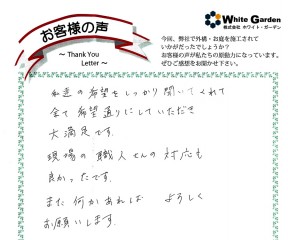 お客様の声
～ Thank You
Letter ～
White Garden
株式会社 ホワイト・ガーデン
今回、弊社で外構・お庭を施工されて
いかがだったでしょうか？
お客様の声が私たちの原動力になっています。
ぜひご感想をお聞かせ下さい。
私達の希望をしっかり聞いてくれて
全て希望通りにしていただき
大満足です。
現場の職人さんの対応も
良かったです。
また何かあれば よろしく
お願いします。